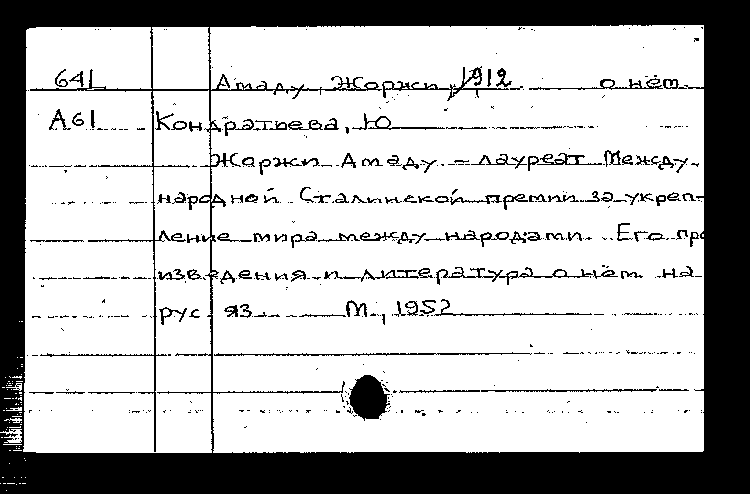 641 Амаду, Жоржи, 1912 о нём.
А61 Кондратьева, Ю
Жоржи Амаду. – лауреат Между-
народной Сталинской премии за укреп-
ление мира между народами. Его про
изведения и литература о нём на
рус яз М., 1952